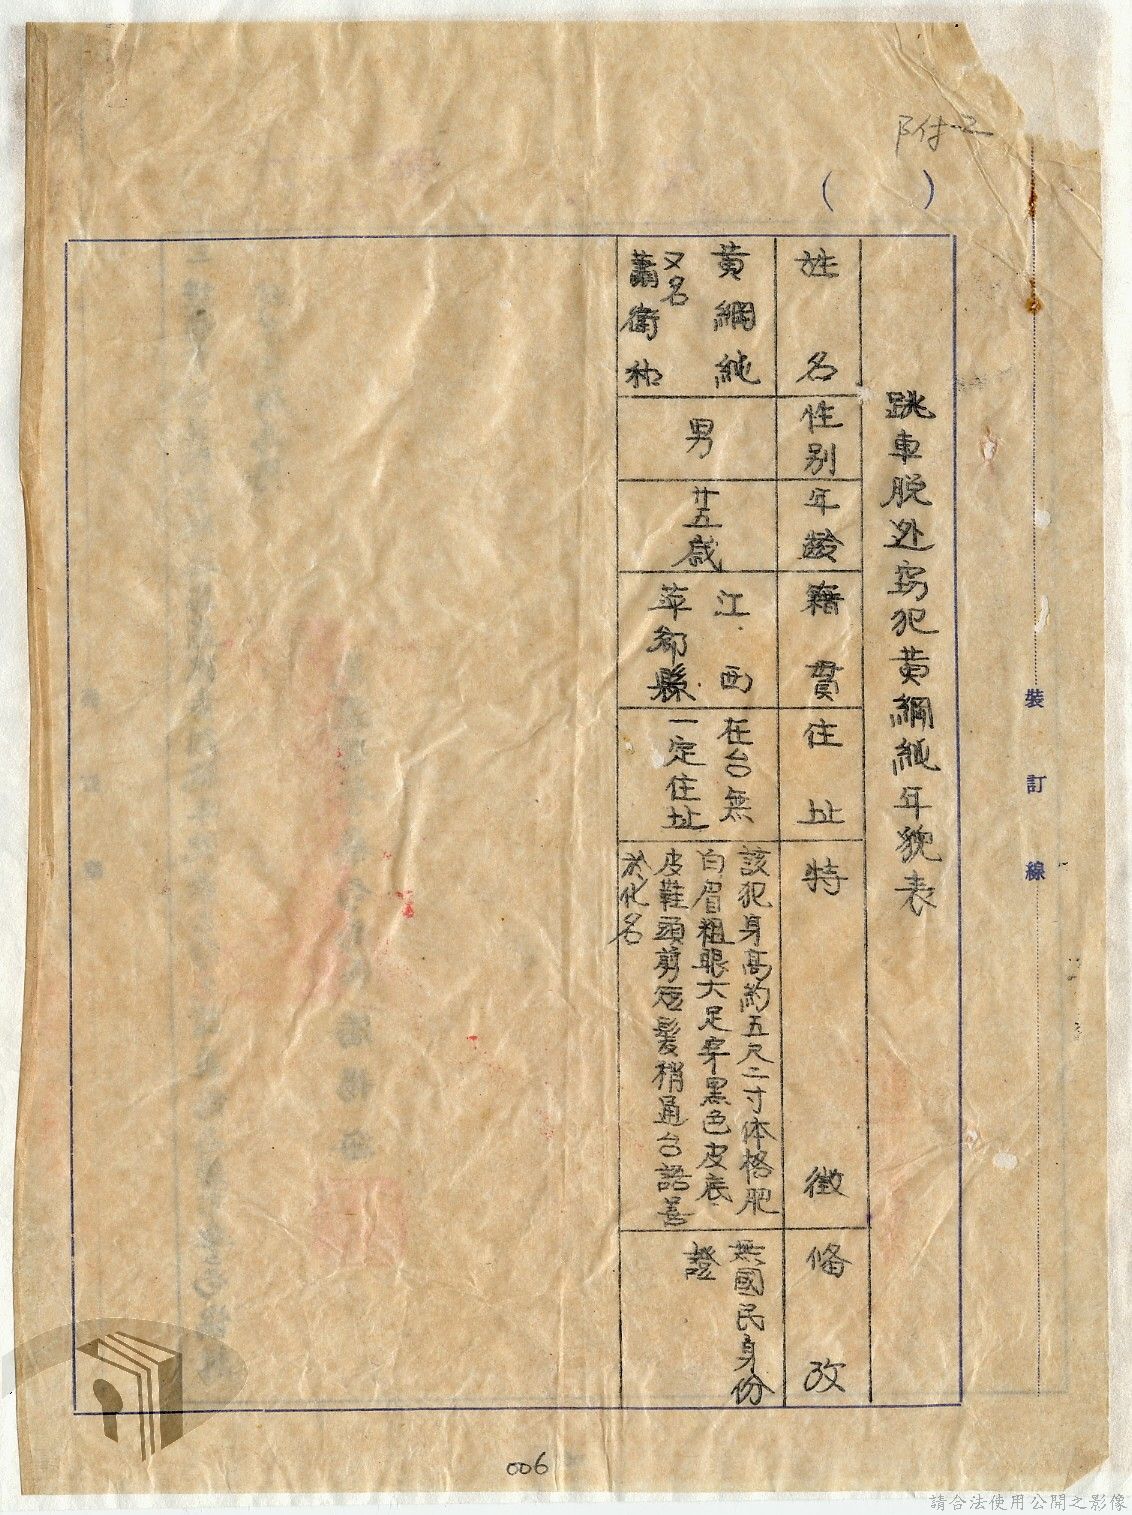 附二
(　　)
裝訂線
跳車脫逃窃犯黃綱純年貌表
姓名
性別
年齡
籍貫
住址
特徵
備攷
黃綱純
又名
蕭衛
男
廿五歲
江西
萍鄉縣
在台無
一定住址
該犯身高約五尺二寸体格肥
白眉粗眼大足穿黑色皮底
皮鞋頭剪短髮稍通台語善
於化名
無國民身份
證
006
請合法使用公開之影像